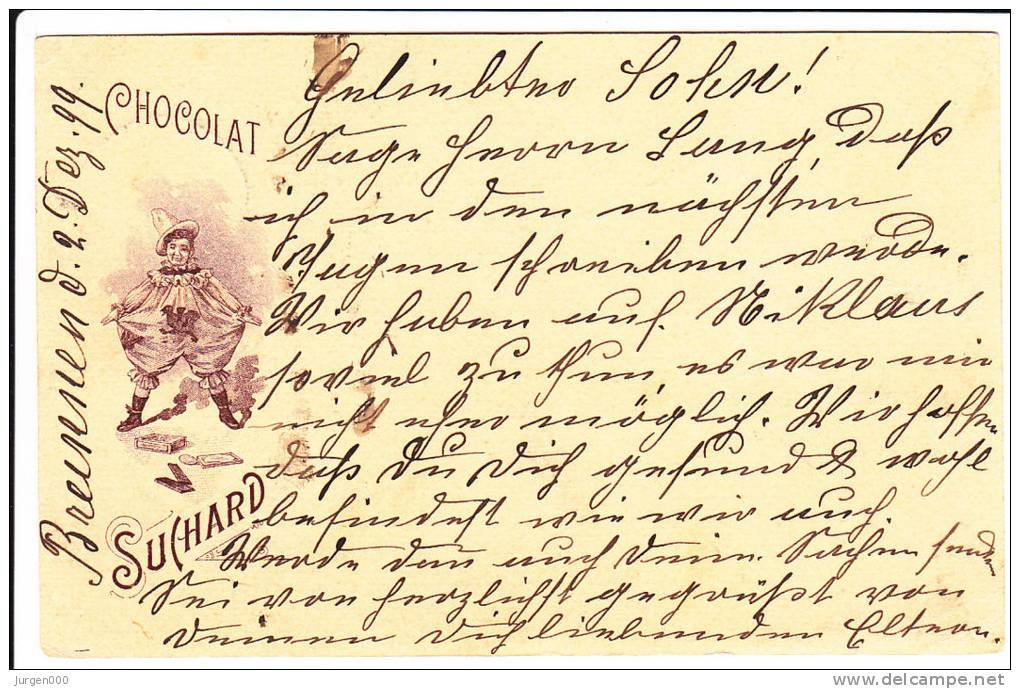 Brunnen d. 2. Dez. 99.
CHOCOLAT
SUCHARD
Geliebter Sohn!
Sage Herrn Lang, daß
ich in den nächsten
Tagen schreiben werde.
Wir haben auf Niklaus
soviel zu thun, es war mir
nicht eher möglich. Wir hoffen
daß Du Dich gesund & wohl
befindest wie wir auch
Werde dan auch Deine Sachen senden
Sei von herzlichst gegrüßt von
Deinen Dich liebenden Eltern.
Jurgen000
delcampe.net